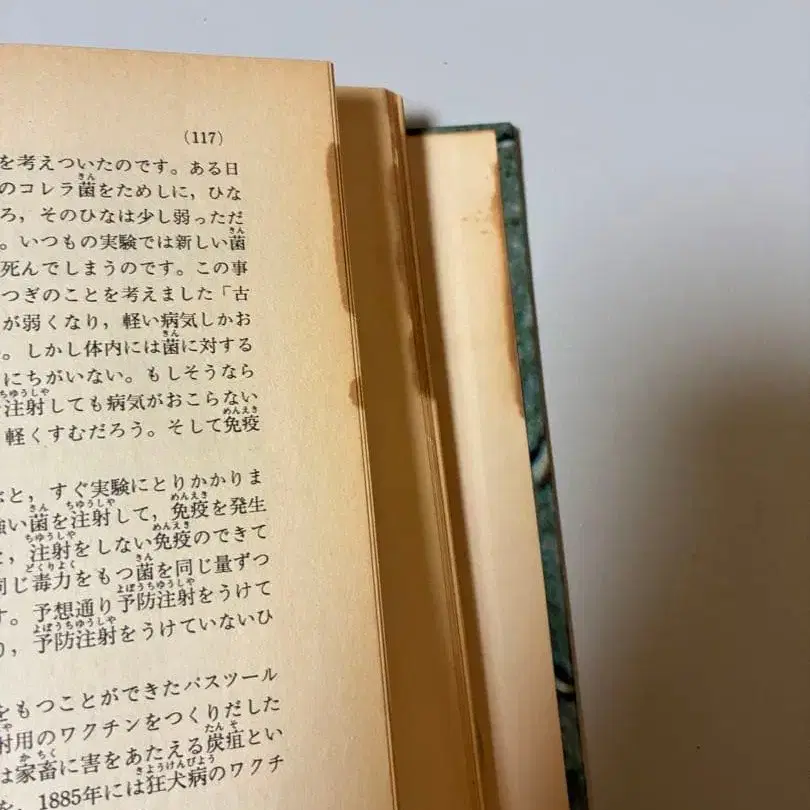 (117)
を考えついたのです。ある日
のコレラ菌をためしに，ひな
ろ，そのひなは少し弱っただ
。いつもの実験では新しい菌
死んでしまうのです。この事
つぎのことを考えました「古
が弱くなり，軽い病気しかお
。しかし体内には菌に対する
にちがいない。もしそうなら
注射しても病気がおこらない
軽くすむだろう。そして免疫
と，すぐ実験にとりかかりま
強い菌を注射して，免疫を発生
，注射をしない免疫のできて
同じ毒力をもつ菌を同じ量ずつ
す。予想通り予防注射をうけて
り，予防注射をうけていないひ
をもつことができたパスツール
射用のワクチンをつくりだした
は家畜に害をあたえる炭疽とい
を，1885年には狂犬病のワクチ